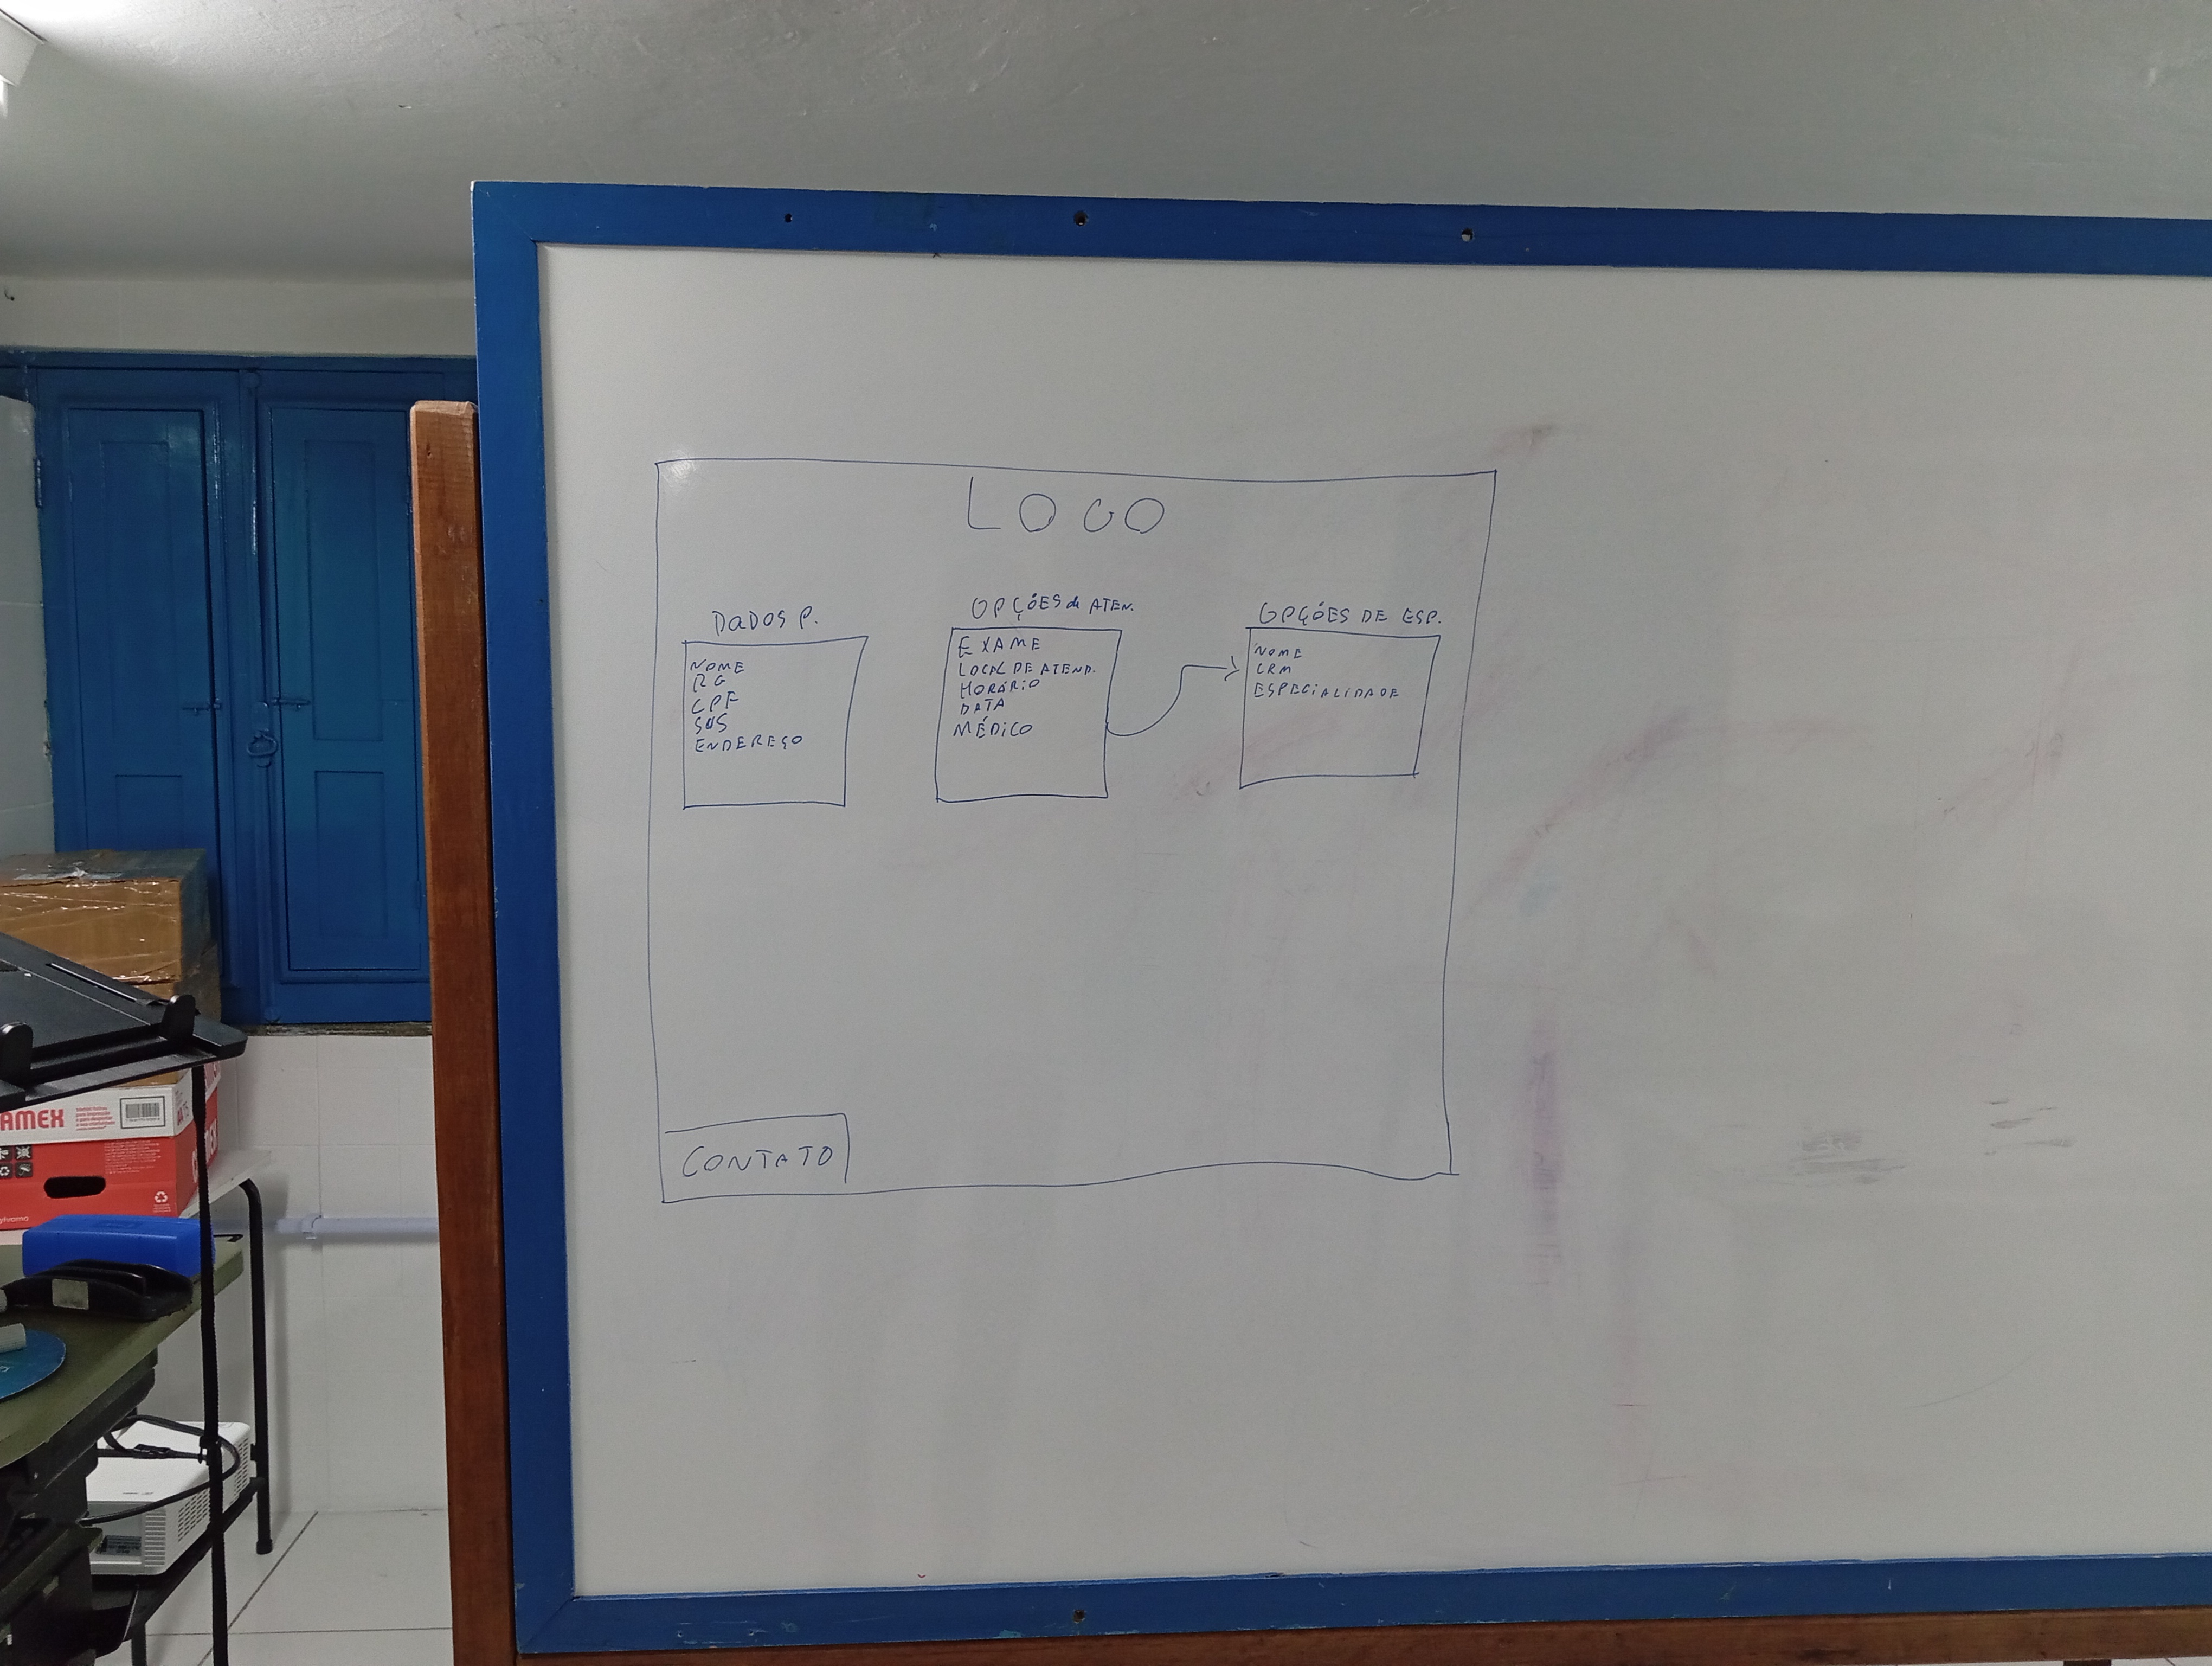 LOGO
DADOS P.
NOME
RG
CPF
SUS
ENDEREÇO
OPÇÕES de ATEN.
EXAME
LOCAL DE ATEND.
HORÁRIO
DATA
MÉDICO
OPÇÕES DE ESP.
NOME
CRM
ESPECIALIDADE
CONTATO
AMEX